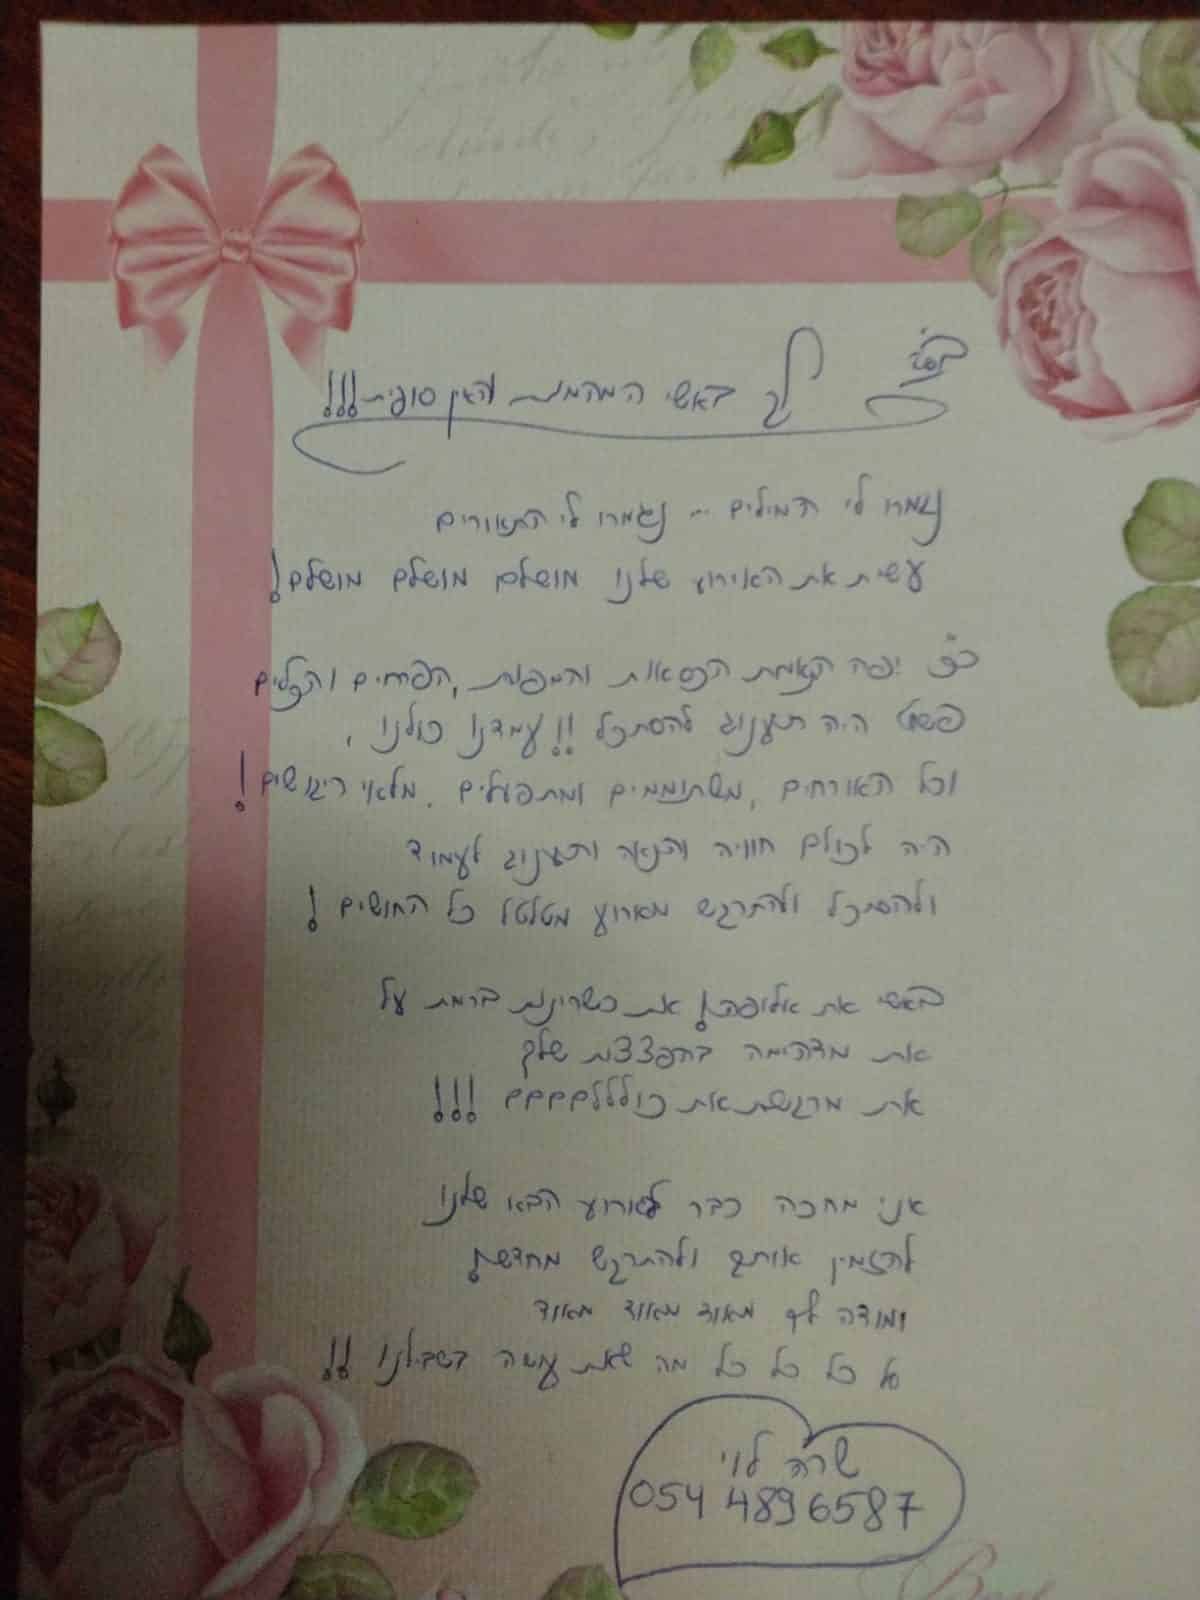 בס"ד
לך באשי המהממת והאין סופית!!!
נגמרו לי המילים ... נגמרו לי התאורים
עשית את האירוע שלנו מושלם מושלם מושלם!
כ"כ יפה הקאמת הכסאות והמפות, הפרחים והכלים
פשוט היה תענוג להסתכל!! עמדנו כולנו,
וכל האורחים, משתוממים ומתפעלים. מלאי ריגושים!
היה לכולם חוויה והנאה ותענוג לעמוד
ולהסתכל ולהתרגש מארוע מטלטל כל החושים!
באשי את אלופה! את כשרונית ברמת על
את מדהימה בהפצצות שלך
את מרגשת את כולללםםםם !!!
אני מחכה כבר לארוע הבא שלנו
להזמין אותך ולהתרגש מחדש!
ומודה לך מאוד מאוד מאוד
על כל כל כל מה שאת עושה בשבילנו !!
שרה לוי
054 4896587